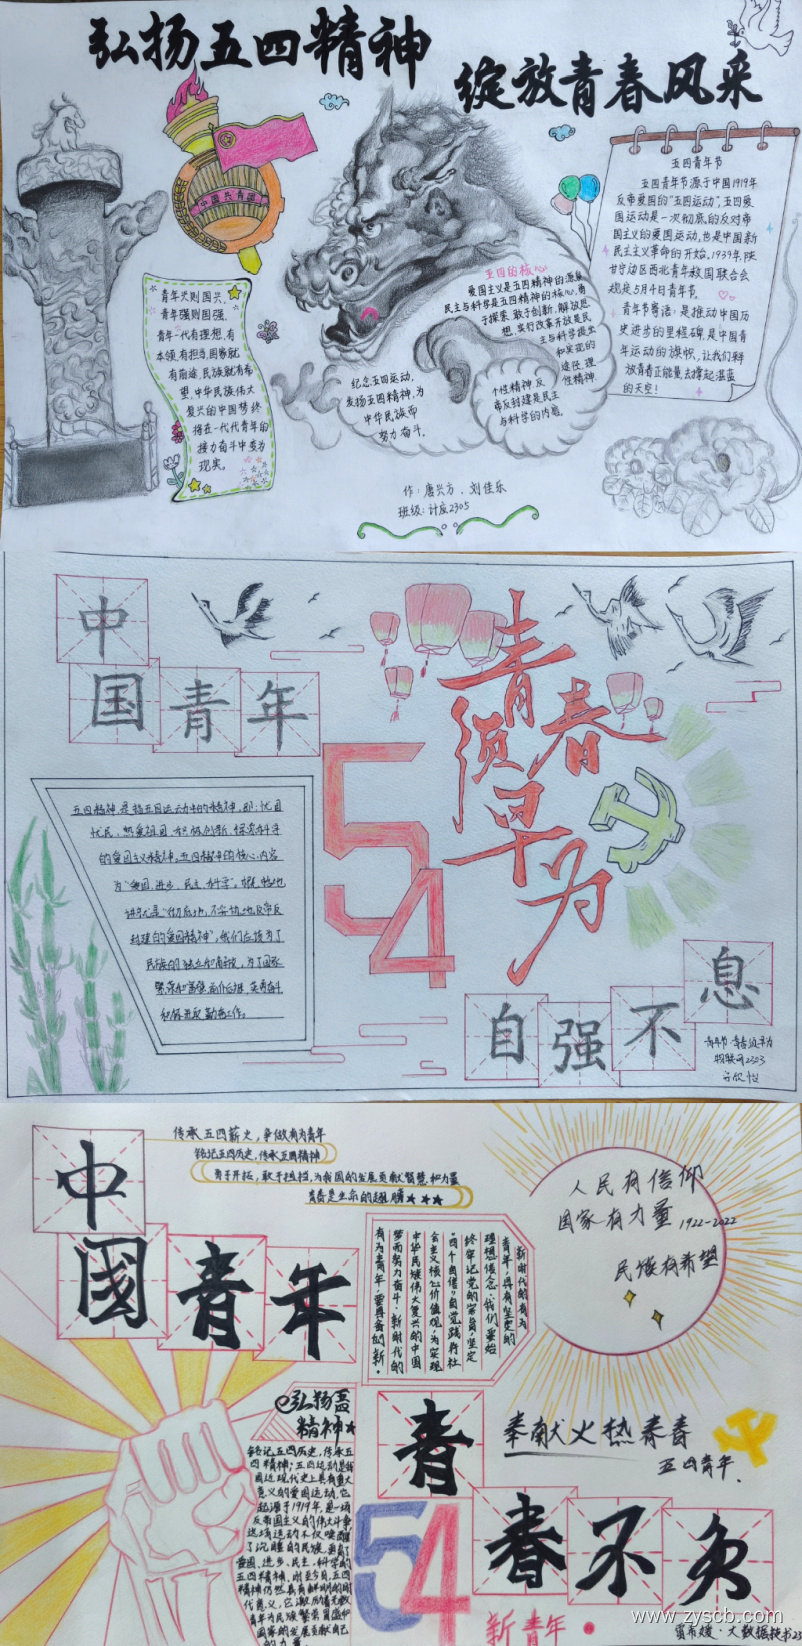 弘扬五四精神
绽放青春风采
中国共青团
五四青年节
五四青年节源于中国1919年
反帝爱国的"五四运动",五四爱
国运动是一次彻底的反对帝
国主义的爱国运动,也是中国新
民主主义革命的开始,1939年,陕
甘宁边区西北青年救国联合会
规定5月4日青年节。
青年节寄语:是推动中国历
史进步的里程碑,是中国青
年运动的旗帜,让我们释
放青春正能量,去撑起湛蓝
的天空!
青年兴则国兴,
青年强则国强,
青年一代有理想,有
本领,有担当,国家就
有前途,民族就有希
望,中华民族伟大
复兴的中国梦终
将在一代代青年的
接力奋斗中变为
现实。
五四的核心
爱国主义是五四精神的源泉
民主与科学是五四精神的核心,勇
于探索、敢于创新、解放思
想、实行改革开放是民
主与科学提出
和实现的
途径,理
性精神、
个性精神、反
帝反封建是民主
与科学的内容。
纪念五四运动,
发扬五四精神,为
中华民族而
努力奋斗。
作:唐兴方、刘佳乐
班级:计应2305
中
国青年
青春
须早为
54
五四精神,是指五四运动中的精神,即:忧国
忧民、热爱祖国、积极创新、探索科学
的爱国主义精神,五四精神的核心内容
为"爱国、进步、民主、科学"。
民族的独立和解放,为了国家
自强不息
青年节·青春须早为
物联网2303
中
國青年
传承五四薪火,争做有为青年
铭记五四历史,传承五四精神
勇于开拓,敢于担当,为我国的发展贡献智慧和力量
青春是生命的翅膀★★★
新时代的有为
青年,具有坚定的
理想信念:我们要始
终牢记党的宗旨,坚定
"四个自信",自觉践行社
会主义核心价值观,为实现
中华民族伟大复兴的中国
梦而努力奋斗。新时代的
有为青年,需具备创新。
人民有信仰
国家有力量 1922-2022
民族有希望
弘扬五四
精神★
铭记五四历史,传承五
四精神;五四运动是我
国近现代史上具有重大
意义的爱国运动,它
起源于1919年,是一场
反帝国主义的伟大斗争
这场运动不仅唤醒
了沉睡的民族,更有了
爱国、进步、民主、科学的
五四精神。时至今日,五四
精神仍然具有鲜明的时
代意义,它激励着无数
青年为民族繁荣富强和
国家的发展贡献自己
的力量。
奉献火热青春
五四青年.
青
春不负
54
新青年
www.zyscb.com